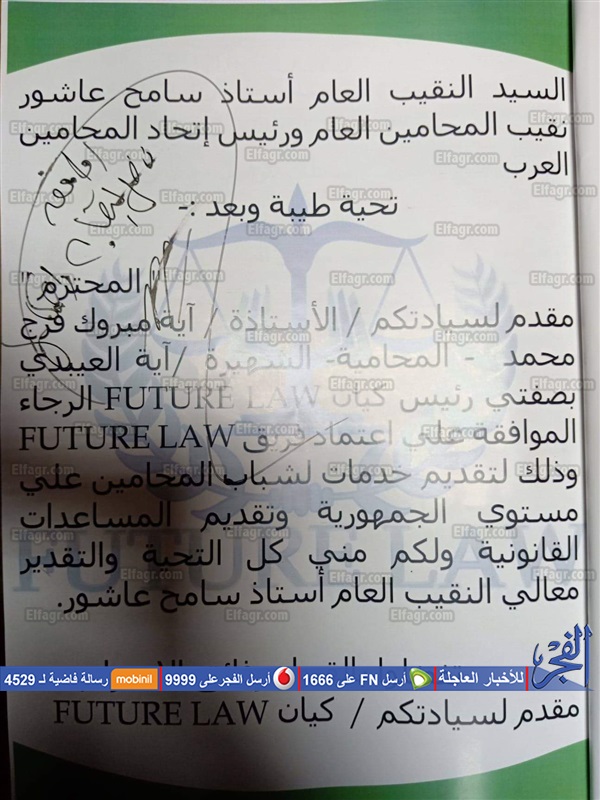 السيد النقيب العام أستاذ سامح عاشور
نقيب المحامين العام ورئيس إتحاد المحامين
العرب
تحية طيبة وبعد :-
المحتزم "
مقدم لسيادتكم / الأستاذة / آية مبروك فرج
محمد - المحامية- الشهيرة /آية العبيدي
بصفتي رئيس كيان FUTURE LAW الرجاء
الموافقة علي اعتماد فريق FUTURE LAW
وذلك لتقديم خدمات لشباب المحامين علي
مستوي الجمهورية وتقديم المساعدات
القانونية ولكم مني كل التحية والتقدير
معالي النقيب العام أستاذ سامح عاشور.
الفجر
للأخبار العاجلة
أرسل FN على 1666
أرسل الفجر على 9999
mobinil رسالة فاضية لـ 4529
مقدم لسيادتكم / كيان FUTURE LAW
FUTURE LAW
Elfagr.com